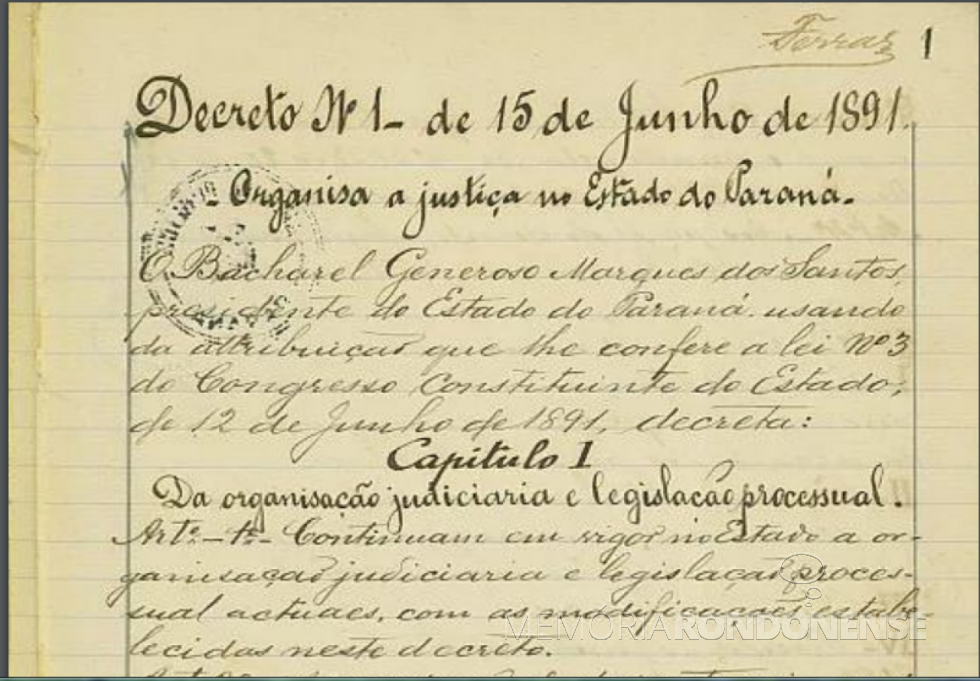 Ferraz 1
Decreto Nº 1_ de 15 de Junho de 1891.
_ Organisa a justiça no Estado do Paraná _
O Bacharel Generoso Marques dos Santos,
presidente do Estado do Paraná, usando
da attribuição que lhe confere a lei Nº 3
do Congresso Constituinte do Estado,
de 12 de Junho de 1891, decreta:
Capitulo I
Da organisação judiciaria e legislação processual.
Artº_ 1º_ Continuam em vigor no Estado a or-
ganisação judiciaria e legislação proces-
sual actuaes, com as modificações estabe-
lecidas neste decreto.
MEMORIARONDONENSE